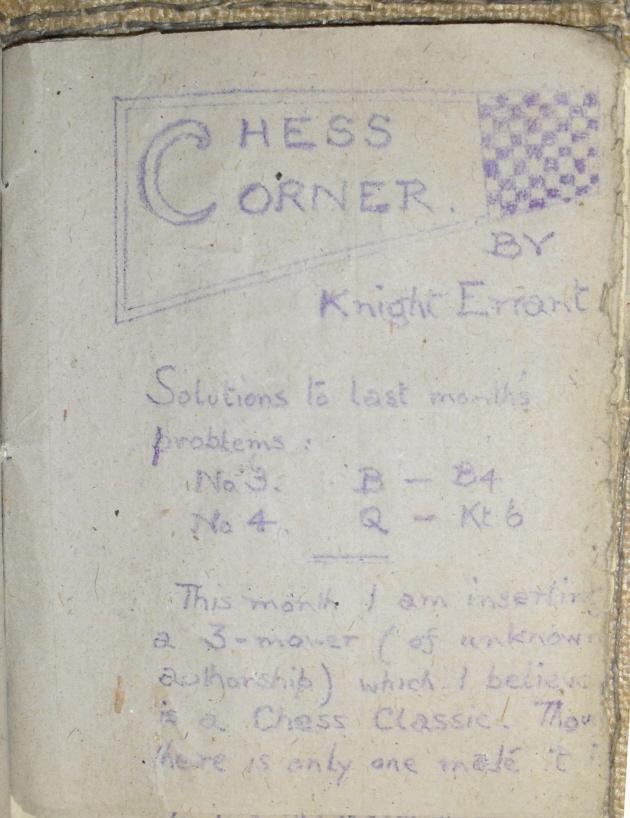 CHESS
CORNER.
BY
Knight Errant
Solutions to last month's
problems :
No 3. B - B4
No 4. Q - Kt 6
This month I am inserting
a 3-mover (of unknown
authorship) which I believe
is a Chess Classic. Thou
there is only one mate it